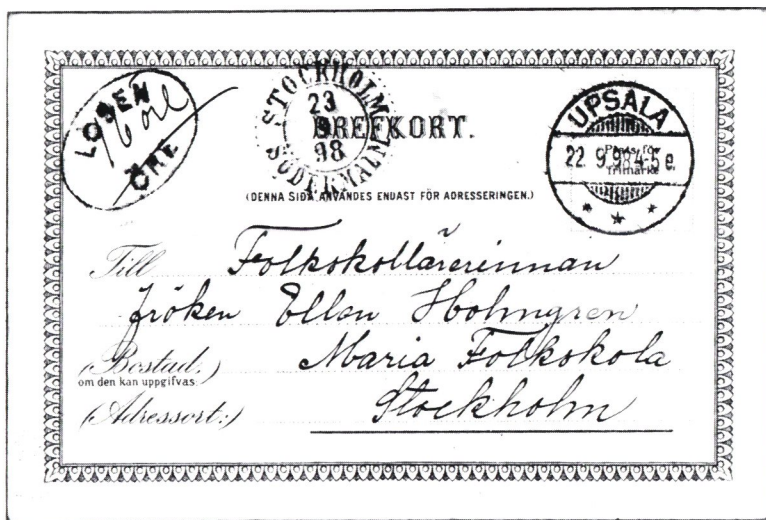 LÖSEN
ÖRE
STOCKHOLM
23
9
98
SÖDERMALM
BREFKORT.
UPSALA
22. 9. 98 4-5 e.
Plats för
frimärke
(DENNA SIDA ANVÄNDES ENDAST FÖR ADRESSERINGEN.)
Till Folkskollärerinnan
Fröken Ellen Holmgren
(Bostad.) Maria Folkskola
om den kan uppgifvas.
(Adressort:) Stockholm